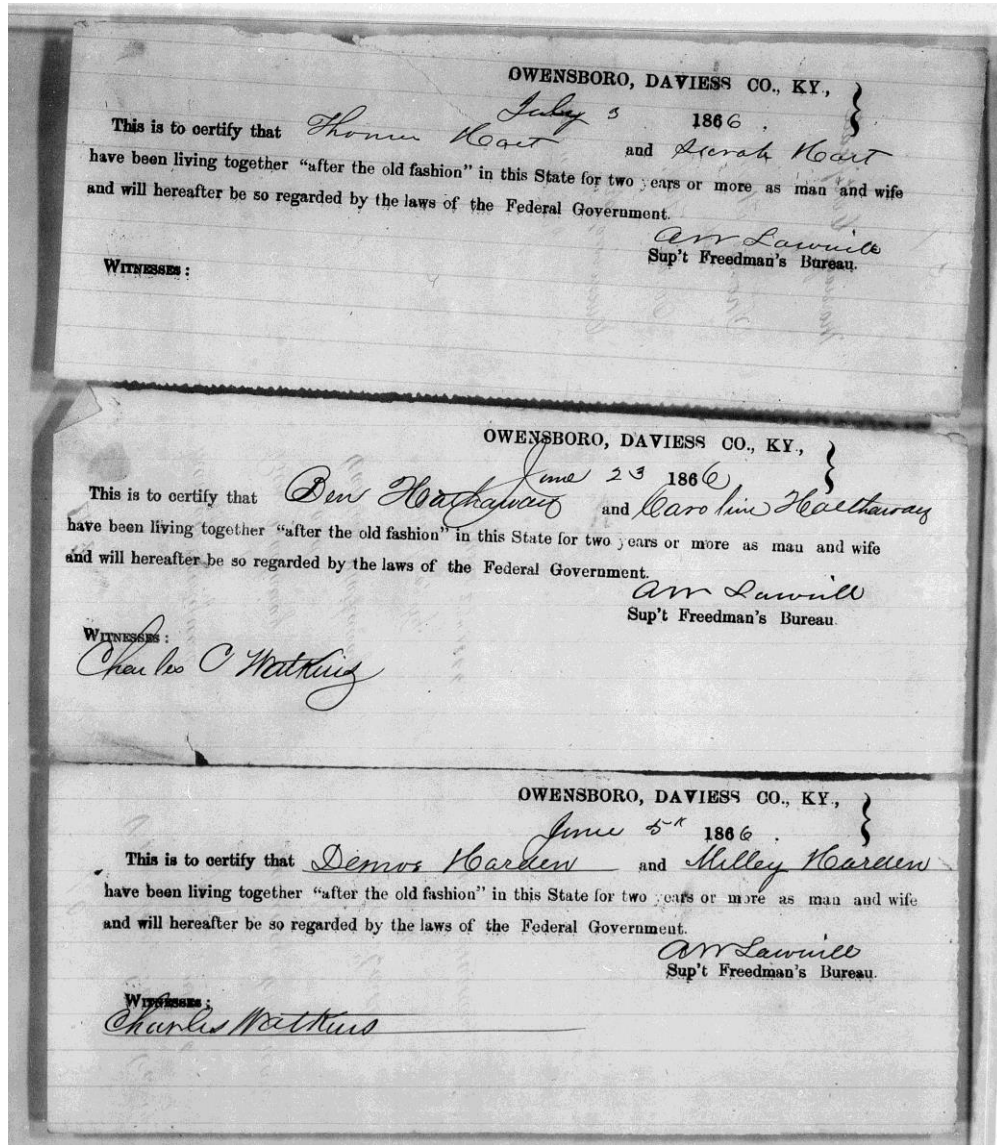 OWENSBORO, DAVIESS CO., KY.,
July 3 1866.
This is to certify that Thomas Hart and Sarah Hart
have been living together “after the old fashion” in this State for two years or more as man and wife
and will hereafter be so regarded by the laws of the Federal Government.
A W Lawwill
Sup't Freedman's Bureau.
WITNESSES:
OWENSBORO, DAVIESS CO., KY.,
June 23 1866
This is to certify that Ben Hathaway and Caroline Hathaway
have been living together “after the old fashion” in this State for two years or more as man and wife
and will hereafter be so regarded by the laws of the Federal Government.
A W Lawwill
Sup't Freedman's Bureau.
WITNESSES:
Charles C Watkins
OWENSBORO, DAVIESS CO., KY.,
June 5th 1866.
This is to certify that Harden and Milley Harden
have been living together “after the old fashion” in this State for two years or more as man and wife
and will hereafter be so regarded by the laws of the Federal Government.
A W Lawwill
Sup't Freedman's Bureau.
WITNESSES:
Charles Watkins